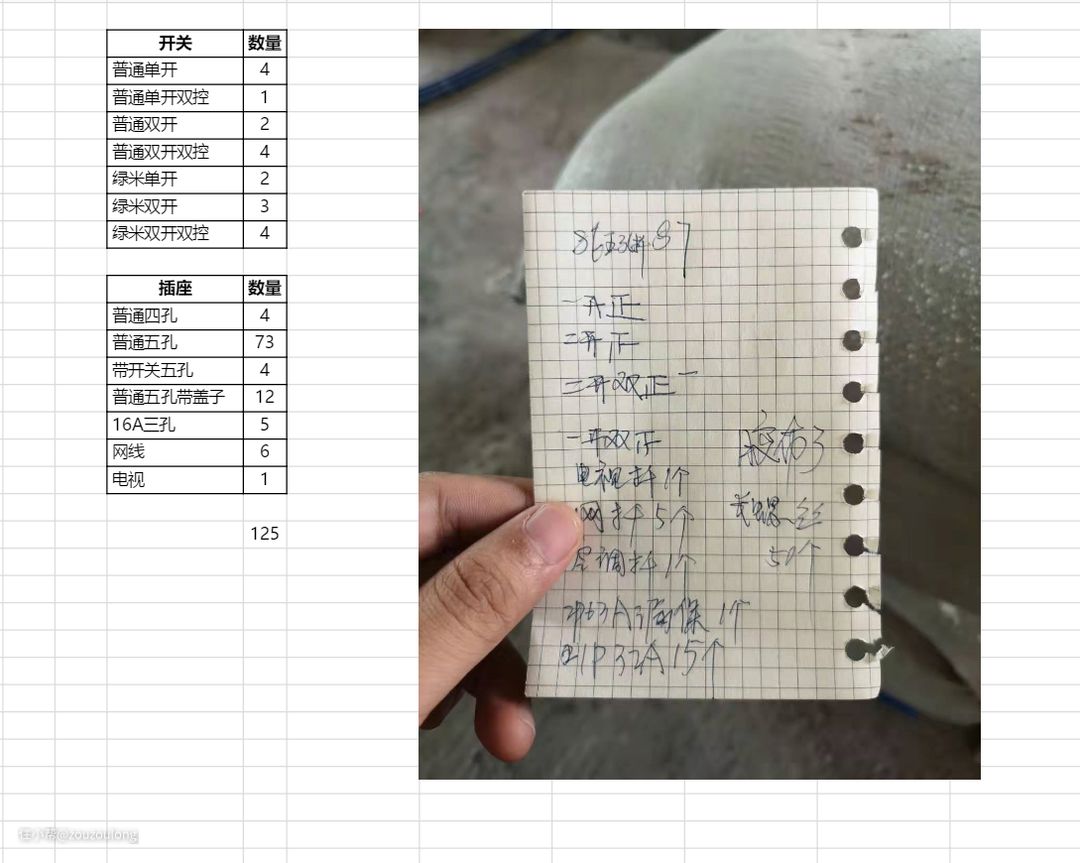 开关 数量
普通单开 4
普通单开双控 1
普通双开 2
普通双开双控 4
绿米单开 2
绿米双开 3
绿米双开双控 4
插座 数量
普通四孔 4
普通五孔 73
带开关五孔 4
普通五孔带盖子 12
16A三孔 5
网线 6
电视 1
125
87
一开正
二开正
二开双正一
一开双正
电视插1个
网插5个
空调插1个
2P63A 保 1个
1P32A 15个
胶布3
螺丝
50个
住小帮@zouzoulong